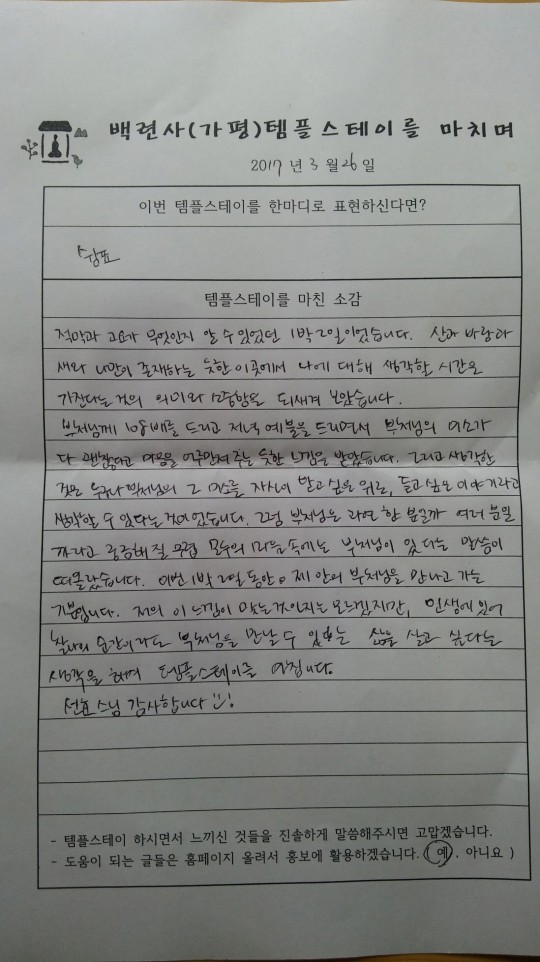 백련사(가평)템플스테이를 마치며
2017 년 3 월 26 일
이번 템플스테이를 한마디로 표현하신다면?
쉼표
템플스테이를 마친 소감
적막과 고요가 무엇인지 알 수 있었던 1박 2일이었습니다. 산과 바람과
새와 나만이 존재하는 듯한 이곳에서 나에 대해 생각할 시간을
가진다는 것의 의미와 소중함을 되새겨 보았습니다.
부처님께 108배를 드리고 저녁 예불을 드리면서 부처님의 미소가
다 괜찮다고 마음을 어루만져 주는 듯한 느낌을 받았습니다. 그리고 생각한
것은 누구나 부처님의 그 미소를 자신이 받고 싶은 위로, 듣고 싶은 이야기라고
생각할 수 있다는 것이었습니다. 그럼 부처님은 과연 한 분일까 여러 분일
까라고 궁금해질 무렵 모두의 마음 속에는 부처님이 있다는 말씀이
떠올랐습니다. 이번 1박 2일 동안 제 안의 부처님을 만나고 가는
기분입니다. 저의 이 느낌이 맞는 것인지는 모르겠지만, 인생에 있어
찰나의 순간이라도 부처님을 만날 수 있는 삶을 살고 싶다는
생각을 하며 템플스테이를 마칩니다.
선효스님 감사합니다 :)!
- 템플스테이 하시면서 느끼신 것들을 진솔하게 말씀해주시면 고맙겠습니다.
- 도움이 되는 글들은 홈페이지 올려서 홍보에 활용하겠습니다.( 예 . 아니요 )